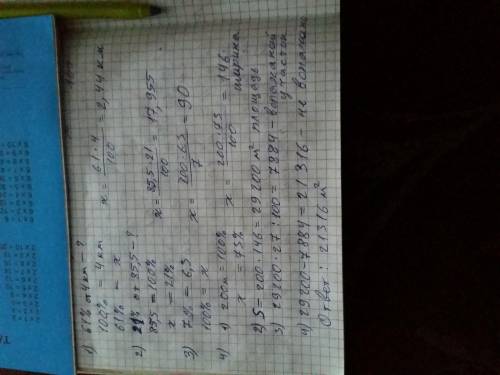 1) 61% от 4 км - ?
100% = 4 км
61% = x
x = 61 · 4 / 100 = 2,44 км
2) 21% от 85,5 - ?
85,5 = 100%
x = 21%
x = 85,5 · 21 / 100 = 17,955
3) 7% = 6,3
100% = x
x = 100 · 6,3 / 7 = 90
4) 1) 200 м = 100%
x = 73%
x = 200 · 73 / 100 = 146 ширина
2) S = 200 · 146 = 29200 м² площадь
3) 29200 · 27 : 100 = 7884 - вспаханый участок
4) 29200 - 7884 = 21316 - не вспахано
Ответ: 21316 м²